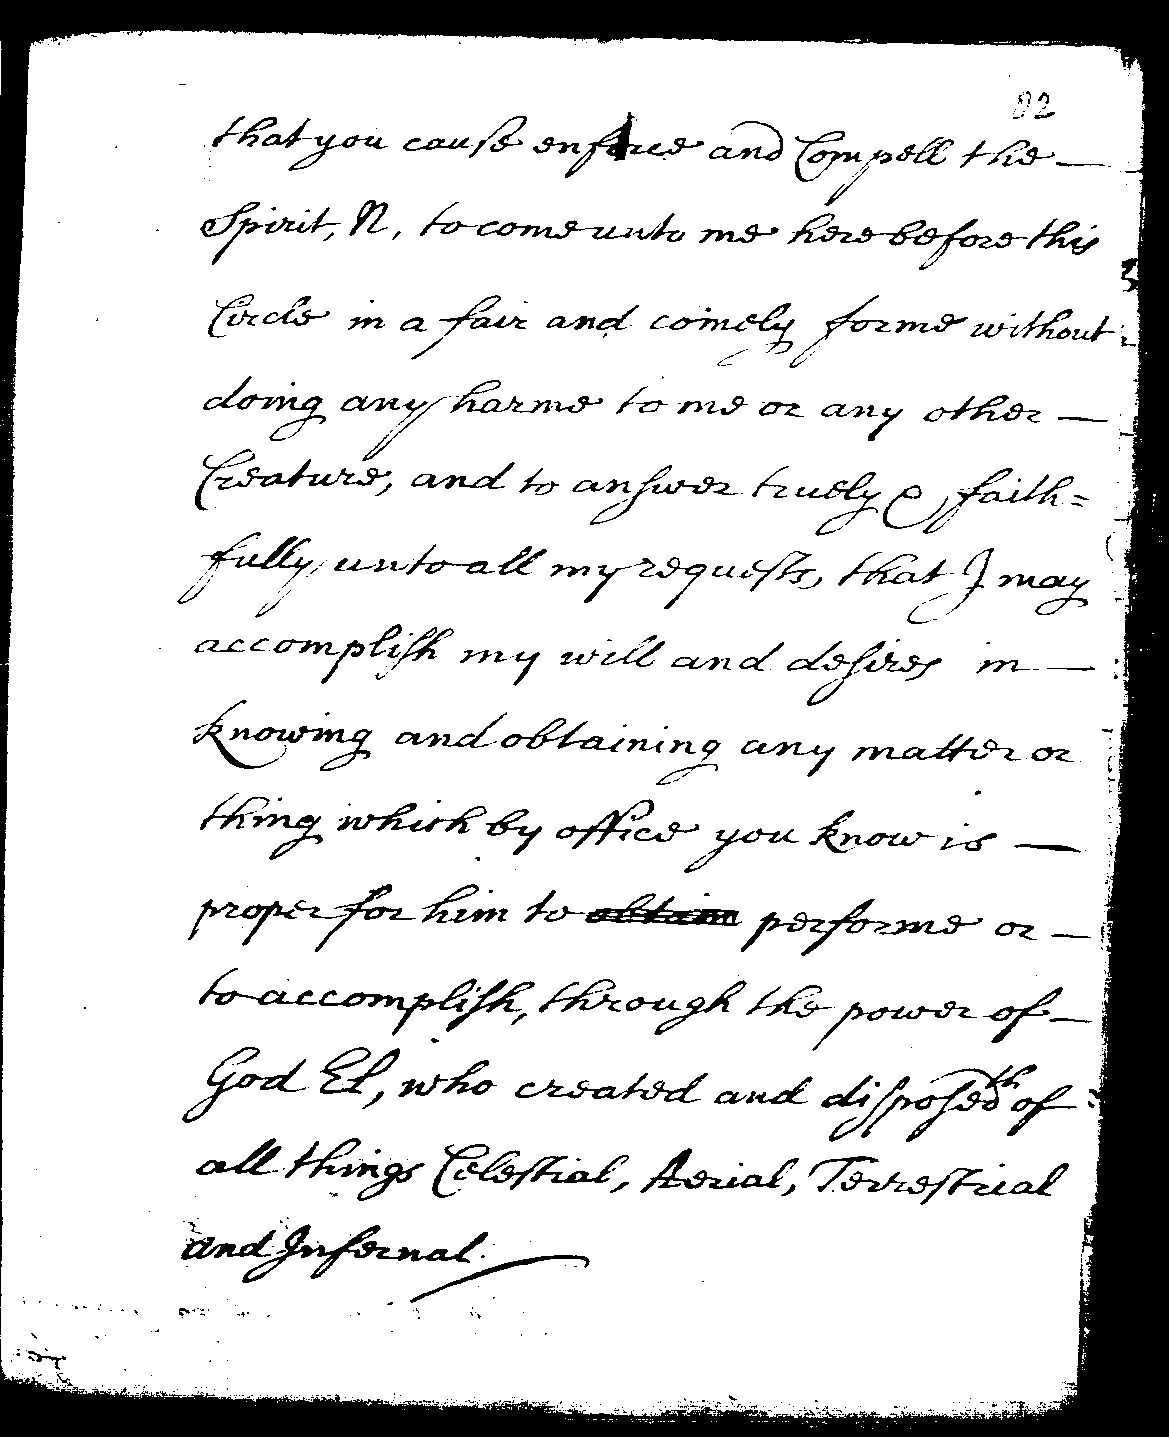 82
that you cause enforce and Compell the —
Spirit, N, to come unto me here before this
Circle in a fair and comely forme without
doing any harme to me or any other —
Creature, and to answer truely & faith=
fully unto all my requests, that I may
accomplish my will and desires in —
knowing and obtaining any matter or
thing which by office you know is —
proper for him to obtain performe or —
to accomplish, through the power of —
God El, who created and disposedth of
all things Celestial, Aerial, Terrestrial
and Infernal.